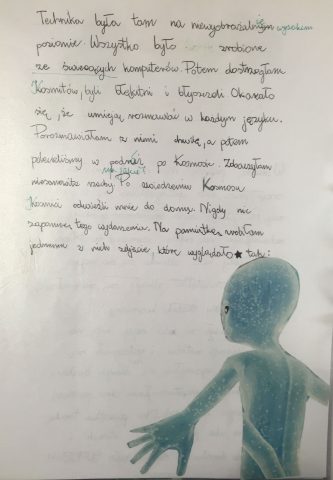 Technika była tam na niewyobrażalnym wysokim
poziomie. Wszystko było zrobione
ze świecących komputerów. Potem dostrzegłam
Kosmitów, byli błękitni i błyszczeli. Okazało
się, że umieją rozmawiać w każdym języku.
Porozmawiałam z nimi chwilę, a potem
polecieliśmy w podróż po Kosmosie. Zobaczyłam
niesamowite rzeczy. Po zwiedzeniu Kosmosu
Kosmici odwieźli mnie do domu. Nigdy nie
zapomnę tego wydarzenia. Na pamiątkę zrobiłam
jednemu z nich zdjęcie, które wyglądało tak: